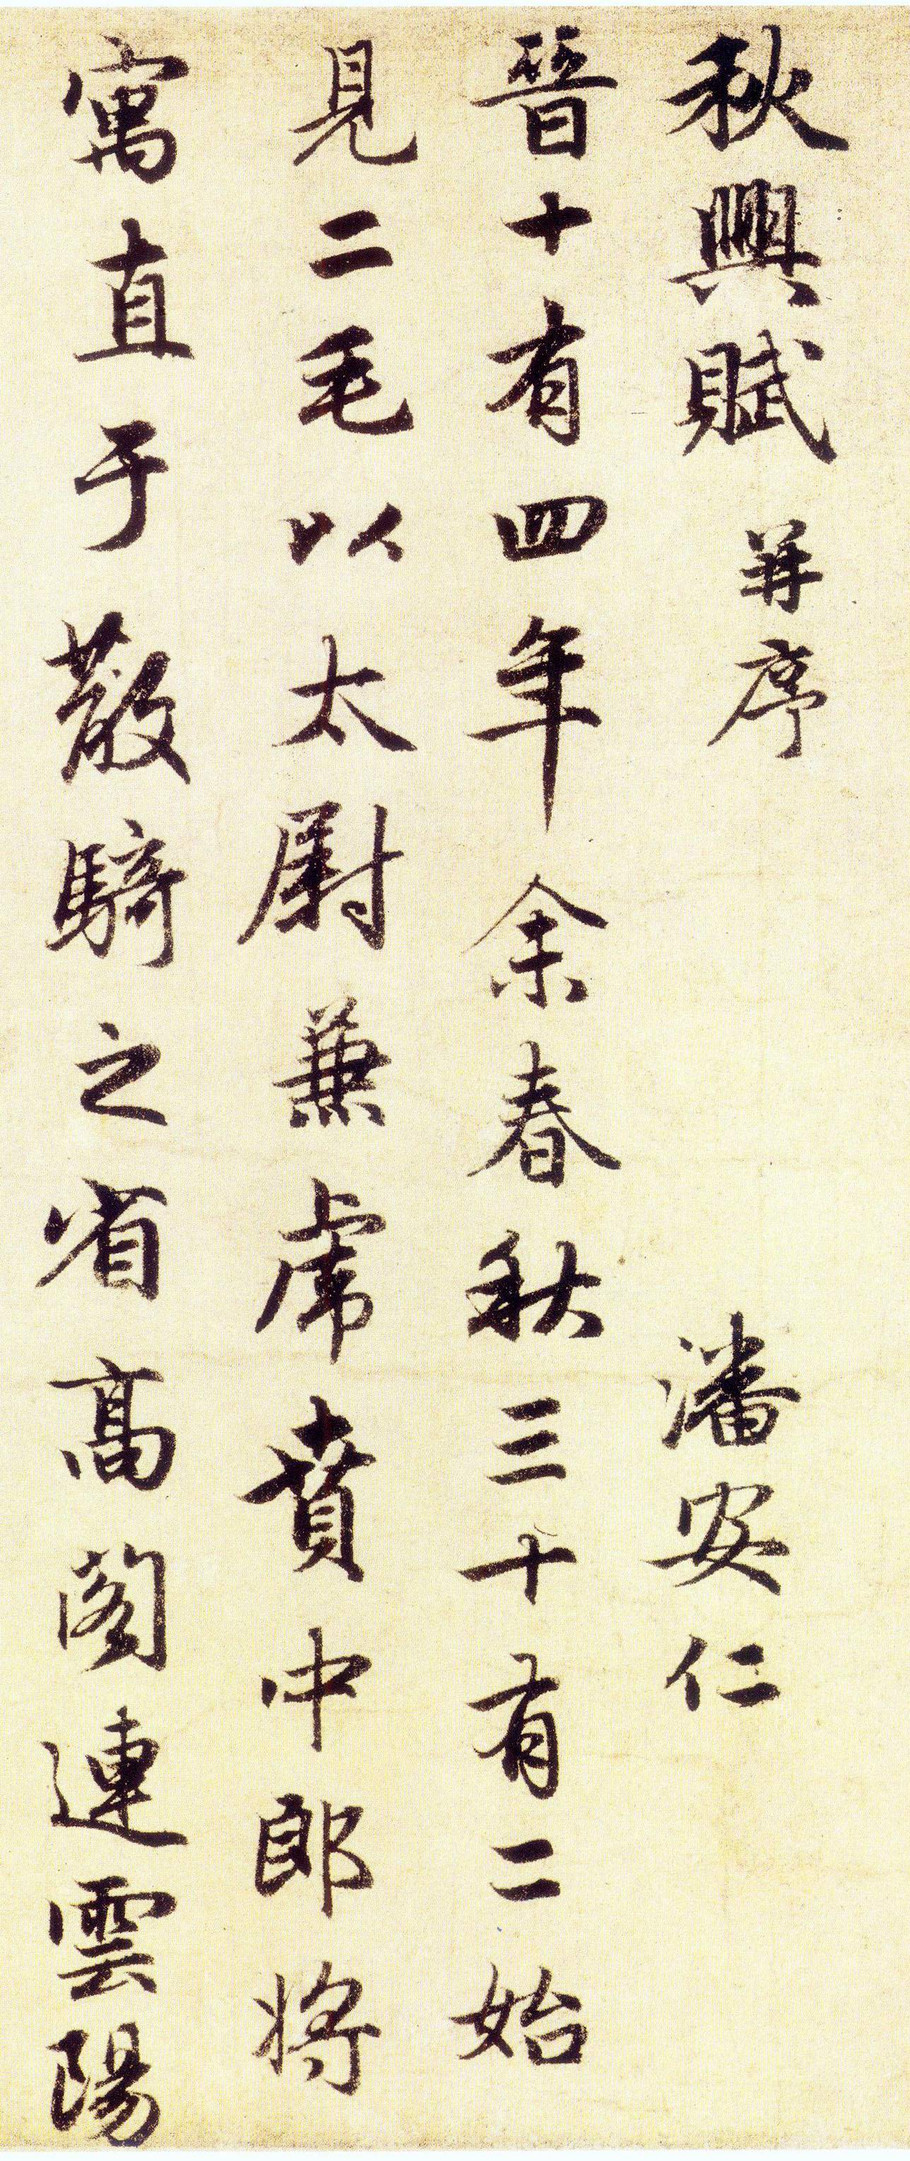 秋興賦并序 潘安仁
晉十有四年余春秋三十有二始
見二毛以太尉兼虎賁中郎將
寓直于散騎之省高閣連雲陽